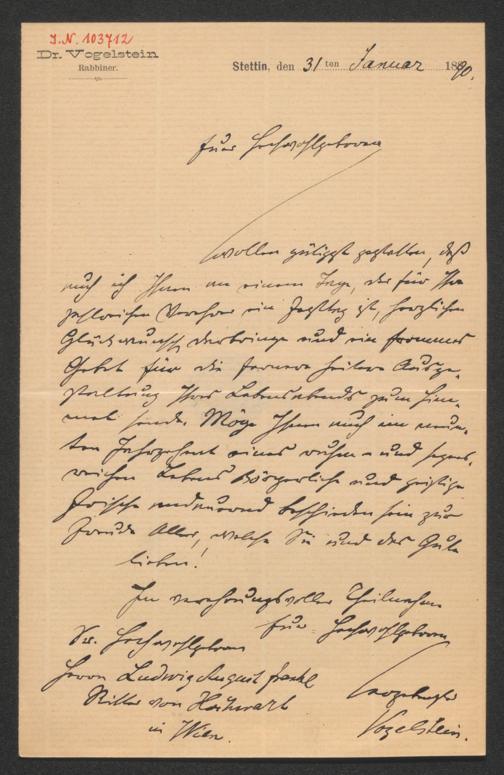 J.N. 103712
Dr. Vogelstein
Rabbiner.
Stettin, den 31 ten Januar 1890.
Euer Hochwohlgeboren
wollen gütigst gestatten, daß
auch ich Ihnen an einem Tage, der für Ihre
zahlreichen Verehrer ein Festtag ist, herzlichen
Glückwunsch darbringe und ein frommes
Gebet für die fernere heitere Ausge-
staltung Ihres Lebensabends zum Him-
mel sende. Möge Ihnen auch im neun-
ten Jahrzehent eines ruhm- und segens-
reichen Lebens körperliche und geistige
Frische andauernd beschieden sein zur
Freude Aller, welche Sie und das Gute
lieben!
In verehrungsvoller Theilnahme
Euer Hochwohlgeboren
Sr. Hochwohlgeboren
Herrn Ludwig August Frankl
Ritter von Hochwart
in Wien.
Vogelstein.